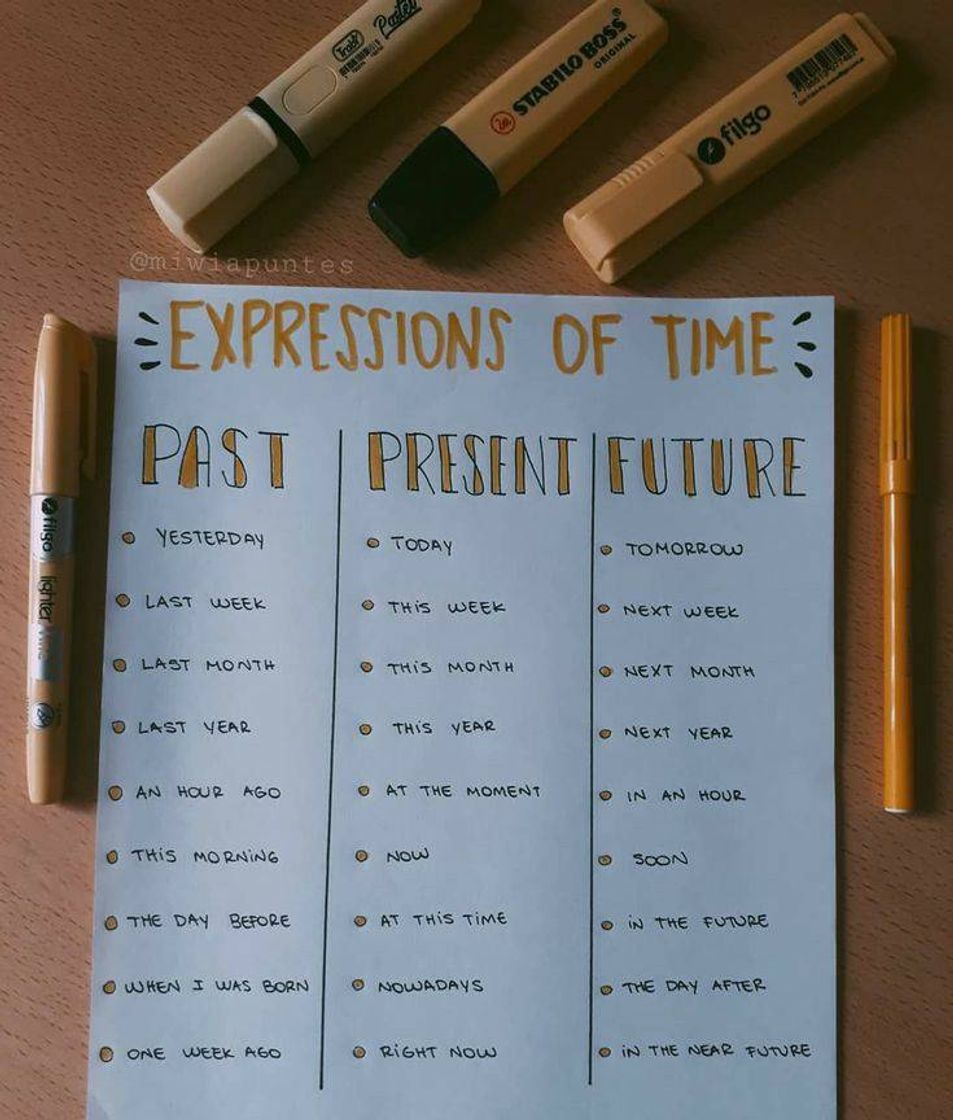 Trabi
Pastel
STABILO BOSS
ORIGINAL
filgo
@miwiapuntes
EXPRESSIONS OF TIME
PAST PRESENT FUTURE
YESTERDAY TODAY TOMORROW
LAST WEEK THIS WEEK NEXT WEEK
LAST MONTH THIS MONTH NEXT MONTH
LAST YEAR THIS YEAR NEXT YEAR
AN HOUR AGO AT THE MOMENT IN AN HOUR
THIS MORNING NOW SOON
THE DAY BEFORE AT THIS TIME IN THE FUTURE
WHEN I WAS BORN NOWADAYS THE DAY AFTER
ONE WEEK AGO RIGHT NOW IN THE NEAR FUTURE
filgo lighter